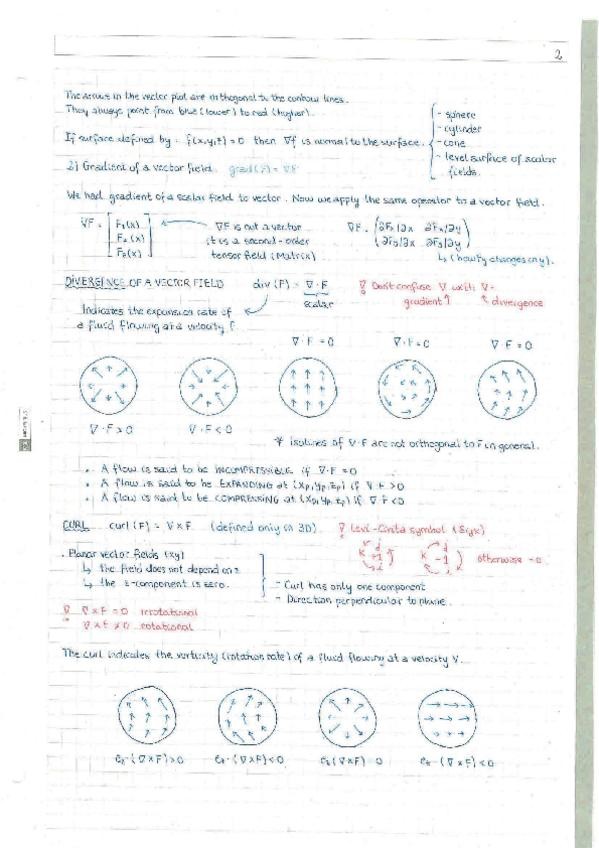 2
The arrows in the vector plot are orthogonal to the contour lines.
They always point from blue (lower) to red (higher).
If surface defined by f(x,y,z)=0 then ∇f is normal to the surface.
- sphere
- cylinder
- cone
- level surface of scalar
fields.
2) Gradient of a vector field. grad(F) = ∇F
We had gradient of a scalar field to vector. Now we apply the same operator to a vector field.
∇F = [F₁(x) F₂(x) F₃(x)] ∇F is not a vector ∇F = (∂Fx/∂x ∂Fx/∂y
it is a second-order ∂Fy/∂x ∂Fy/∂y)
tensor field (Matrix) ↳ (how Fy changes in y).
DIVERGENCE OF A VECTOR FIELD div(F) = ∇·F Don't confuse ∇ with ∇·
scalar gradient ↑ ↖ divergence
Indicates the expansion rate of
a fluid flowing at a velocity F
∇·F = 0 ∇·F = 0 ∇·F = 0
∇·F > 0 ∇·F < 0
* isolines of ∇·F are not orthogonal to F in general.
• A flow is said to be INCOMPRESSIBLE if ∇·F = 0
• A flow is said to be EXPANDING at (xp, yp, zp) if ∇·F > 0
• A flow is said to be COMPRESSING at (xp, yp, zp) if ∇·F < 0
CURL curl(F) = ∇×F (defined only in 3D). Levi-Civita symbol (εijk)
. Planar vector fields (xy) k i +1 j k i -1 j otherwise = 0
↳ the field does not depend on z
↳ the z-component is zero.
- Curl has only one component
- Direction perpendicular to plane.
∇×F = 0 irrotational
∇×F ≠ 0 rotational
The curl indicates the vorticity (rotation rate) of a fluid flowing at a velocity V.
ez·(∇×F)>0 ez·(∇×F)<0 ez(∇×F)=0 ez·(∇×F)<0